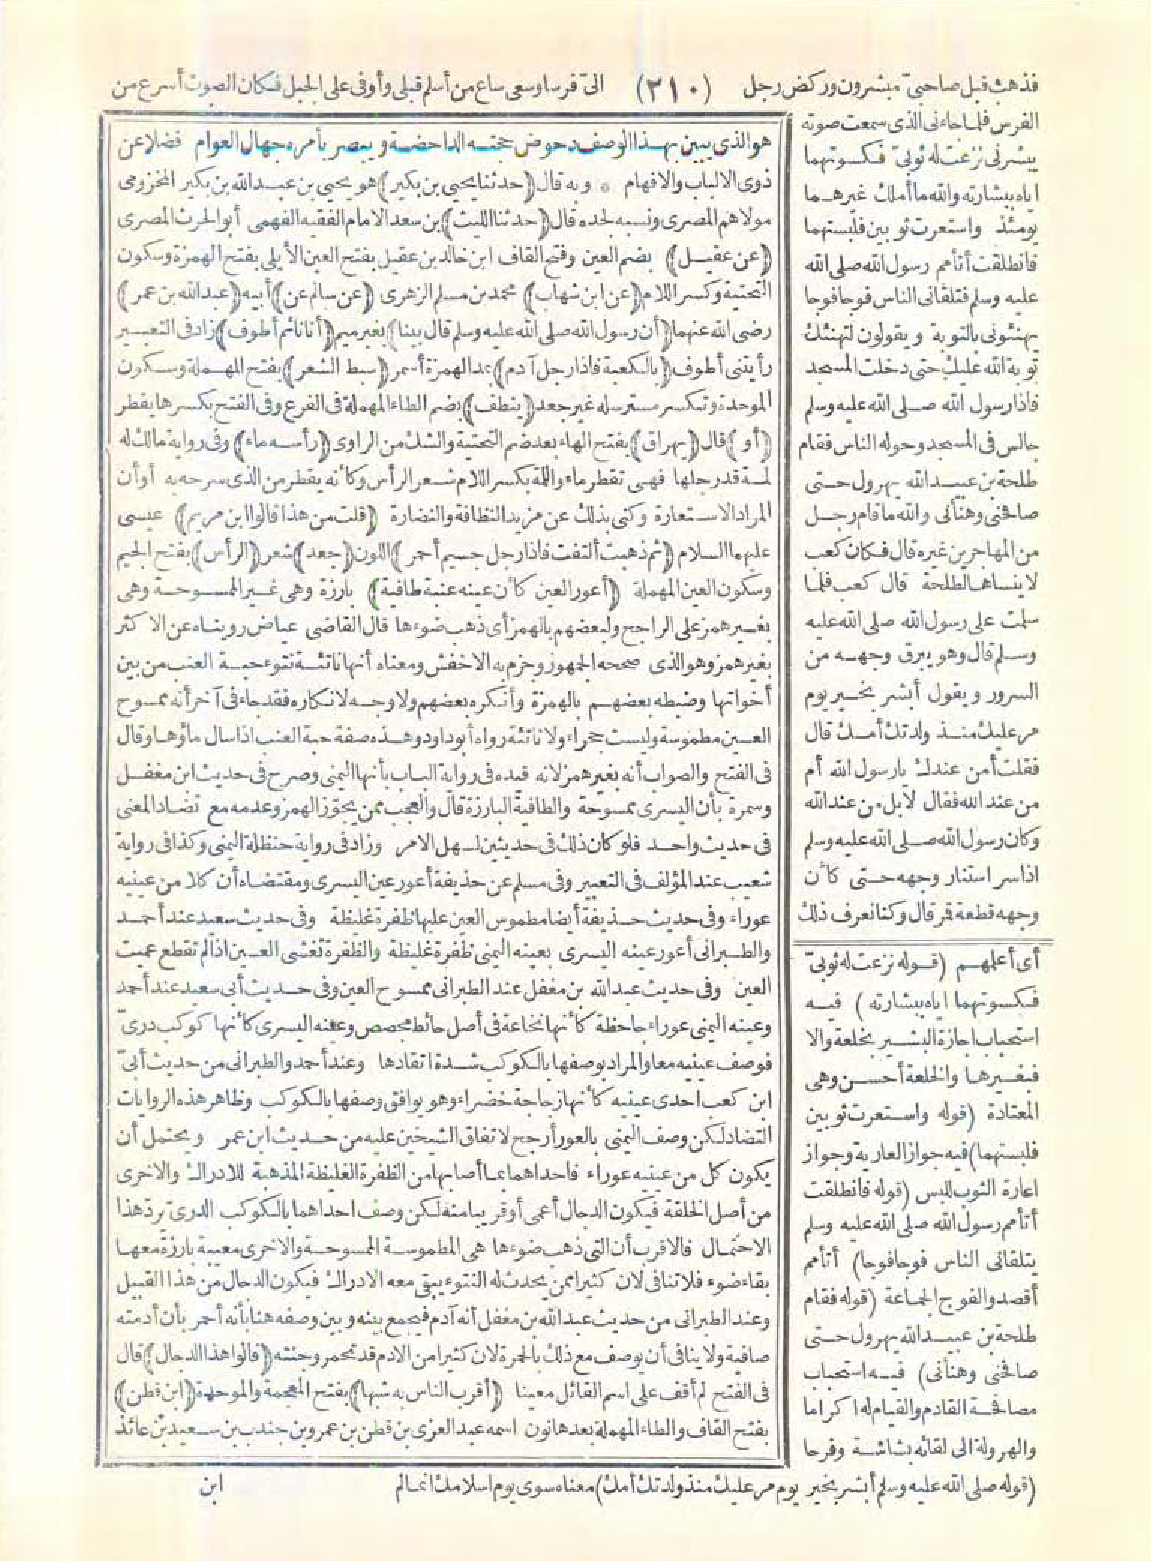 فذهب قبل صاحبي مبشرون وركض رجل (٢١٠) الى فرسا وسعى ساع من أسلم قبلى وأوفى على الجبل فكان الصوت أسرع من
الفرس فلما جاءنى الذى سمعت صوته
يبشرنى نزعت له ثوبىّ فكسوتهما
اياه ببشارته والله ما أملك غيرهما
يومئذ واستعرت ثوبين فلبستهما
فانطلقت أتأمم رسول الله صلى الله
عليه وسلم فتلقانى الناس فوجا فوجا
يهنئونى بالتوبة ويقولون لتهنئك
توبة الله عليك حتى دخلت المسجد
فاذا رسول الله صلى الله عليه وسلم
جالس فى المسجد وحوله الناس فقام
طلحة بن عبيد الله يهرول حتى
صافحنى وهنأنى والله ما قام رجل
من المهاجرين غيره قال فكان كعب
لا ينساها لطلحة قال كعب فلما
سلمت على رسول الله صلى الله عليه
وسلم قال وهو يبرق وجهه من
السرور ويقول أبشر بخير يوم
مر عليك منذ ولدتك أمك قال
فقلت أمن عندك يا رسول الله أم
من عند الله فقال لا بل من عند الله
وكان رسول الله صلى الله عليه وسلم
اذا سر استنار وجهه حتى كأن
وجهه قطعة قمر قال وكنا نعرف ذلك
أى أعلمهم (قوله نزعت له ثوبىّ
فكسوتهما اياه ببشارته) فيه
استحباب اجازة البشير بخلعة والا
فبغيرها والخلعة أحسن وهى
المعتادة (قوله واستعرت ثوبين
فلبستهما) فيه جواز العارية وجواز
اعارة الثوب للبس (قوله فانطلقت
أتأمم رسول الله صلى الله عليه وسلم
يتلقانى الناس فوجا فوجا) أتأمم
أقصد والفوج الجماعة (قوله فقام
طلحة بن عبيد الله يهرول حتى
صافحنى وهنأنى) فيه استحباب
مصافحة القادم والقيام له اكراما
والهرولة الى لقائه بشاشة وفرحا
(قوله صلى الله عليه وسلم أبشر بخير يوم مر عليك منذ ولدتك أمك) معناه سوى يوم اسلامك انما لم
هو الذى يبين بهذا الوصف دحوض حجته الداحضة ويبصر بأمره جهال العوام فضلا عن
ذوى الالباب والافهام * وبه قال (حدثنا يحيى بن بكير) هو يحيى بن عبد الله بن بكير المخزومى
مولاهم المصرى ونسبه لجده قال (حدثنا الليث) بن سعد الامام الفقيه الفهمى أبو الحرث المصرى
(عن عقيل) بضم العين وفتح القاف ابن خالد بن عقيل بفتح العين الأيلى بفتح الهمزة وسكون
التحتية وكسر اللام (عن ابن شهاب) محمد بن مسلم الزهرى (عن سالم عن) أبيه (عبد الله بن عمر)
رضى الله عنهما (أن رسول الله صلى الله عليه وسلم قال بينا) بغير ميم (أنا نائم أطوف) زاد فى التعبير
رأيتنى أطوف (بالكعبة فاذا رجل آدم) بمد الهمزة أسمر (سبط الشعر) بفتح المهملة وسكون
الموحدة وتكسر مسترسله غير جعد (ينطف) بضم الطاء المهملة فى الفرع وفى الفتح بكسرها يقطر
(أو) قال (يهراق) بفتح الهاء بعد ضم التحتية والشك من الراوى (رأسه ماء) وفى رواية مالك له
لمة قد رجلها فهى تقطر ماء واللمة بكسر اللام شعر الرأس وكأنه يقطر من الذى سرحه به أو أن
المراد الاستعارة وكنى بذلك عن مزيد النظافة والنضارة (قلت من هذا قالوا ابن مريم) عيسى
عليهما السلام (ثم ذهبت ألتفت فاذا رجل جسيم أحمر) اللون (جعد) شعر (الرأس) بفتح الجيم
وسكون العين المهملة (أعور العين كأن عينه عنبة طافية) بارزة وهى غير الممسوحة وهى
بغير همز على الراجح ولبعضهم بالهمز أى ذهب ضوءها قال القاضى عياض رويناه عن الاكثر
بغير همز وهو الذى صححه الجمهور وجزم به الاخفش ومعناه أنها ناتئة نتوء حبة العنب من بين
أخواتها وضبطه بعضهم بالهمزة وأنكره بعضهم ولا وجه لانكاره فقد جاء فى آخر أنه ممسوح
العين مطموسة وليست حجراء ولا ناتئة رواه أبو داود وهذه صفة حبة العنب اذا سال ماؤها وقال
فى الفتح والصواب أنه بغير همز لانه قيده فى رواية الباب بأنها اليمنى وصرح فى حديث ابن مغفل
وسمرة بأن اليسرى ممسوحة والطافية البارزة قال والعجب ممن يجوّز الهمز وعدمه مع تضاد المعنى
فى حديث واحد فلو كان ذلك فى حديثين لسهل الامر وزاد فى رواية حنظلة اليمنى وكذا فى رواية
شعيب عند المؤلف فى التعبير وفى مسلم عن حذيفة أعور عين اليسرى ومقتضاه أن كلا من عينيه
عوراء وفى حديث حذيفة أيضا مطموس العين عليها ظفرة غليظة وفى حديث سعيد عند أحمد
والطبرانى أعور عينه اليسرى بعينه اليمنى ظفرة غليظة والظفرة تغشى العين اذا لم تقطع عميت
العين وفى حديث عبد الله بن مغفل عند الطبرانى ممسوح العين وفى حديث أبى سعيد عند أحمد
وعينه اليمنى عوراء جاحظة كأنها نخاعة فى أصل حائط مجصص وعينه اليسرى كأنها كوكب درىّ
فوصف عينيه معا والمراد بوصفها بالكوكب شدة اتقادها وعند أحمد والطبرانى من حديث أبىّ
ابن كعب احدى عينيه كأنها زجاجة خضراء وهو يوافق وصفها بالكوكب وظاهر هذه الروايات
التضاد لكن وصف اليمنى بالعور أرجح لاتفاق الشيخين عليه من حديث ابن عمر ويحتمل أن
يكون كل من عينيه عوراء فاحداهما بما أصابها من الظفرة الغليظة المذهبة للادراك والاخرى
من أصل الخلقة فيكون الدجال أعمى أو قريبا منه لكن وصف احداهما بالكوكب الدرىّ يردّ هذا
الاحتمال فالاقرب أن التى ذهب ضوءها هى المطموسة الممسوحة والاخرى معيبة بارزة معها
بقاء ضوء فلا تنافى لان كثيرا ممن يحدث له النتوء يبقى معه الادراك فيكون الدجال من هذا القبيل
وعند الطبرانى من حديث عبد الله بن مغفل أنه آدم فيجمع بينه وبين وصفه هنا بأنه أحمر بأن أدمته
صافية ولا ينافى أن يوصف مع ذلك بالحمرة لان كثيرا من الادم قد تحمر وجنته (قالوا هذا الدجال) قال
فى الفتح لم أقف على اسم القائل معينا (أقرب الناس به شبها) بفتح المعجمة والموحدة (ابن قطن)
بفتح القاف والطاء المهملة بعدها نون اسمه عبد العزى بن قطن بن عمرو بن جندب بن سعيد بن عائذ
ابن